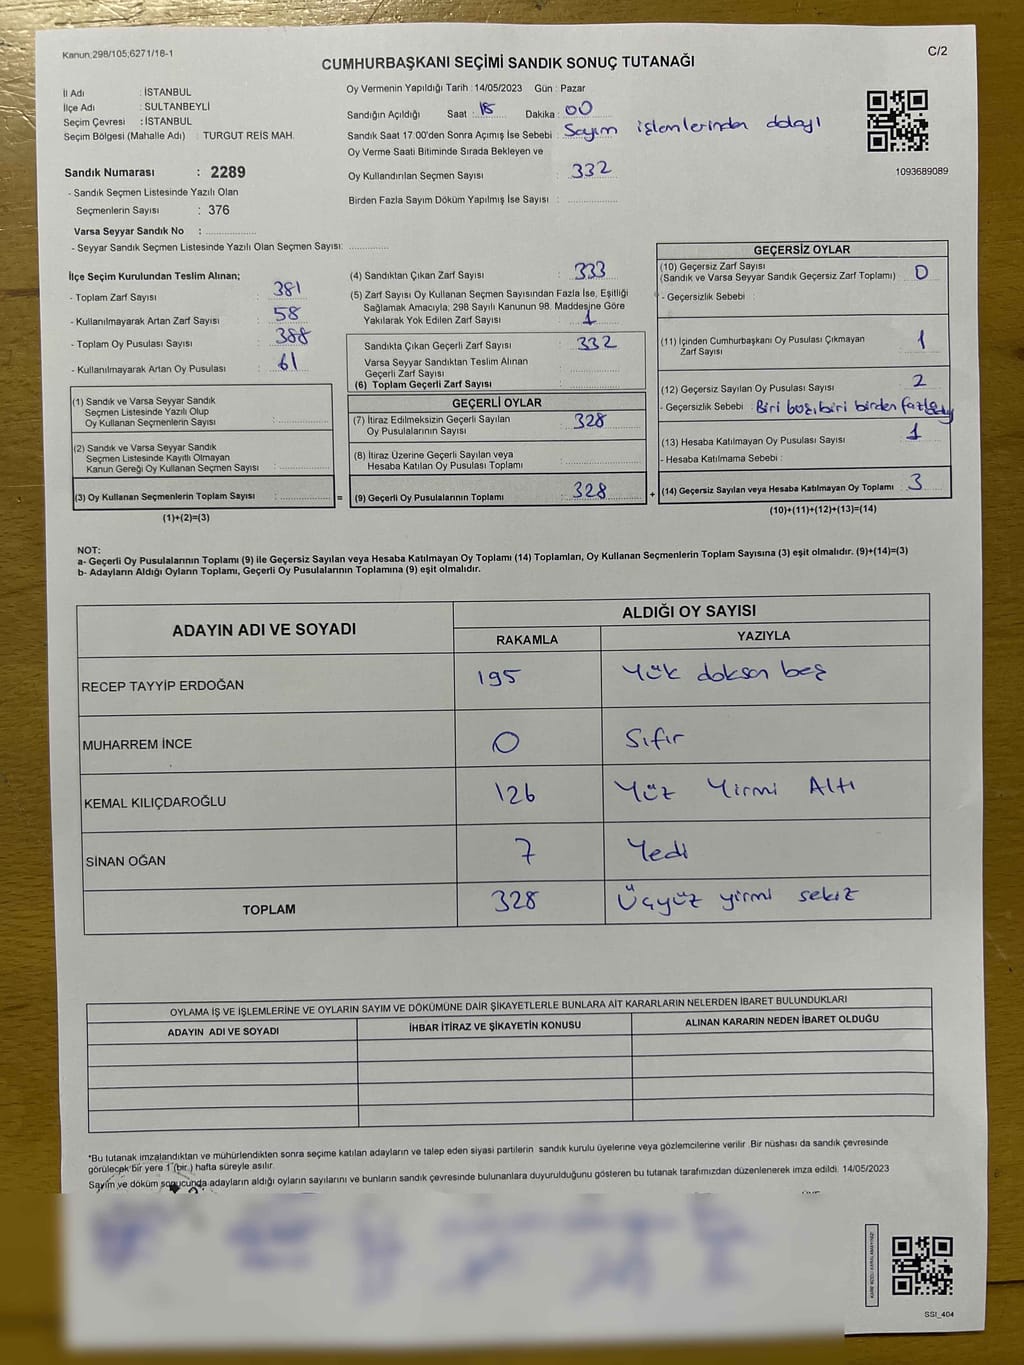 Kanun:298/105;6271/18-1
C/2
CUMHURBAŞKANI SEÇİMİ SANDIK SONUÇ TUTANAĞI
İl Adı : İSTANBUL
İlçe Adı : SULTANBEYLİ
Seçim Çevresi : İSTANBUL
Seçim Bölgesi (Mahalle Adı) : TURGUT REİS MAH.
Sandık Numarası : 2289
- Sandık Seçmen Listesinde Yazılı Olan
Seçmenlerin Sayısı : 376
Varsa Seyyar Sandık No :
- Seyyar Sandık Seçmen Listesinde Yazılı Olan Seçmen Sayısı:
Oy Vermenin Yapıldığı Tarih : 14/05/2023 Gün : Pazar
Sandığın Açıldığı Saat : 18 Dakika : 00
Sandık Saat 17.00'den Sonra Açımış İse Sebebi : Sayım işlemlerinden dolayı
Oy Verme Saati Bitiminde Sırada Bekleyen ve
Oy Kullandırılan Seçmen Sayısı : 332
Birden Fazla Sayım Döküm Yapılmış İse Sayısı :
1093689089
İlçe Seçim Kurulundan Teslim Alınan;
- Toplam Zarf Sayısı : 381
- Kullanılmayarak Artan Zarf Sayısı : 58
- Toplam Oy Pusulası Sayısı : 388
- Kullanılmayarak Artan Oy Pusulası : 61
(1) Sandık ve Varsa Seyyar Sandık
Seçmen Listesinde Yazılı Olup
Oy Kullanan Seçmenlerin Sayısı :
(2) Sandık ve Varsa Seyyar Sandık
Seçmen Listesinde Kayıtlı Olmayan
Kanun Gereği Oy Kullanan Seçmen Sayısı :
(3) Oy Kullanan Seçmenlerin Toplam Sayısı : =
(1)+(2)=(3)
(4) Sandıktan Çıkan Zarf Sayısı : 333
(5) Zarf Sayısı Oy Kullanan Seçmen Sayısından Fazla İse, Eşitliği
Sağlamak Amacıyla; 298 Sayılı Kanunun 98. Maddesine Göre
Yakılarak Yok Edilen Zarf Sayısı : 1
Sandıkta Çıkan Geçerli Zarf Sayısı : 332
Varsa Seyyar Sandıktan Teslim Alınan
Geçerli Zarf Sayısı
(6) Toplam Geçerli Zarf Sayısı :
GEÇERLİ OYLAR
(7) İtiraz Edilmeksizin Geçerli Sayılan
Oy Pusulalarının Sayısı : 328
(8) İtiraz Üzerine Geçerli Sayılan veya
Hesaba Katılan Oy Pusulası Toplamı :
(9) Geçerli Oy Pusulalarının Toplamı : 328 +
GEÇERSİZ OYLAR
(10) Geçersiz Zarf Sayısı
(Sandık ve Varsa Seyyar Sandık Geçersiz Zarf Toplamı) : 0
- Geçersizlik Sebebi :
(11) İçinden Cumhurbaşkanı Oy Pusulası Çıkmayan
Zarf Sayısı : 1
(12) Geçersiz Sayılan Oy Pusulası Sayısı : 2
- Geçersizlik Sebebi : Biri boş, biri birden fazla
(13) Hesaba Katılmayan Oy Pusulası Sayısı : 1
- Hesaba Katılmama Sebebi :
(14) Geçersiz Sayılan veya Hesaba Katılmayan Oy Toplamı : 3
(10)+(11)+(12)+(13)=(14)
NOT:
a- Geçerli Oy Pusulalarının Toplamı (9) ile Geçersiz Sayılan veya Hesaba Katılmayan Oy Toplamı (14) Toplamları, Oy Kullanan Seçmenlerin Toplam Sayısına (3) eşit olmalıdır. (9)+(14)=(3)
b- Adayların Aldığı Oyların Toplamı, Geçerli Oy Pusulalarının Toplamına (9) eşit olmalıdır.
ADAYIN ADI VE SOYADI ALDIĞI OY SAYISI
RAKAMLA YAZIYLA
RECEP TAYYİP ERDOĞAN 195 Yük doksan beş
MUHARREM İNCE 0 Sıfır
KEMAL KILIÇDAROĞLU 126 Yüz Yirmi Altı
SİNAN OĞAN 7 Yedi
TOPLAM 328 Üçyüz yirmi sekiz
OYLAMA İŞ VE İŞLEMLERİNE VE OYLARIN SAYIM VE DÖKÜMÜNE DAİR ŞİKAYETLERLE BUNLARA AİT KARARLARIN NELERDEN İBARET BULUNDUKLARI
ADAYIN ADI VE SOYADI İHBAR İTİRAZ VE ŞİKAYETİN KONUSU ALINAN KARARIN NEDEN İBARET OLDUĞU
*Bu tutanak imzalandıktan ve mühürlendikten sonra seçime katılan adayların ve talep eden siyasi partilerin sandık kurulu üyelerine veya gözlemcilerine verilir. Bir nüshası da sandık çevresinde
görülecek bir yere 1 (bir.) hafta süreyle asılır.
Sayım ve döküm sonucunda adayların aldığı oyların sayılarını ve bunların sandık çevresinde bulunanlara duyurulduğunu gösteren bu tutanak tarafımızdan düzenlenerek imza edildi. 14/05/2023
SSI_404